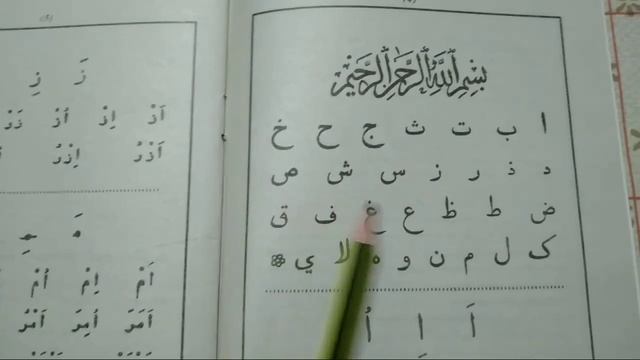 بِسْمِ اللّٰهِ الرَّحْمٰنِ الرَّحِيْمِ
ا ب ت ث ج ح خ
د ذ ر ز س ش ص
ض ط ظ ع غ ف ق
ک ل م ن و ه لا ي
اَ اِ اُ
زَ زِ
اَزْ اِزْ اُزْ
مَ مِ
اَمْ اِمْ اُمْ
اَمَرَ اُمِرَ